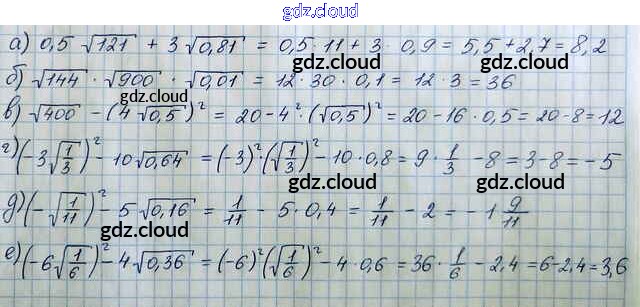 gdz.cloud
а) 0,5 · √121 + 3 √0,81 = 0,5 · 11 + 3 · 0,9 = 5,5 + 2,7 = 8,2
gdz.cloud
б) √144 · √900 · √0,01 = 12 · 30 · 0,1 = 12 · 3 = 36
gdz.cloud gdz.cloud
в) √400 - (4√0,5)² = 20 - 4² · (√0,5)² = 20 - 16 · 0,5 = 20 - 8 = 12
г) (-3√(1/3))² - 10√0,64 = (-3)² · (√(1/3))² - 10 · 0,8 = 9 · 1/3 - 8 = 3 - 8 = -5
gdz.cloud gdz.cloud
д) (-√(1/11))² - 5√0,16 = 1/11 - 5 · 0,4 = 1/11 - 2 = -1 9/11
gdz.cloud gdz.cloud
е) (-6√(1/6))² - 4√0,36 = (-6)² (√(1/6))² - 4 · 0,6 = 36 · 1/6 - 2,4 = 6 - 2,4 = 3,6
gdz.cloud gdz.cloud